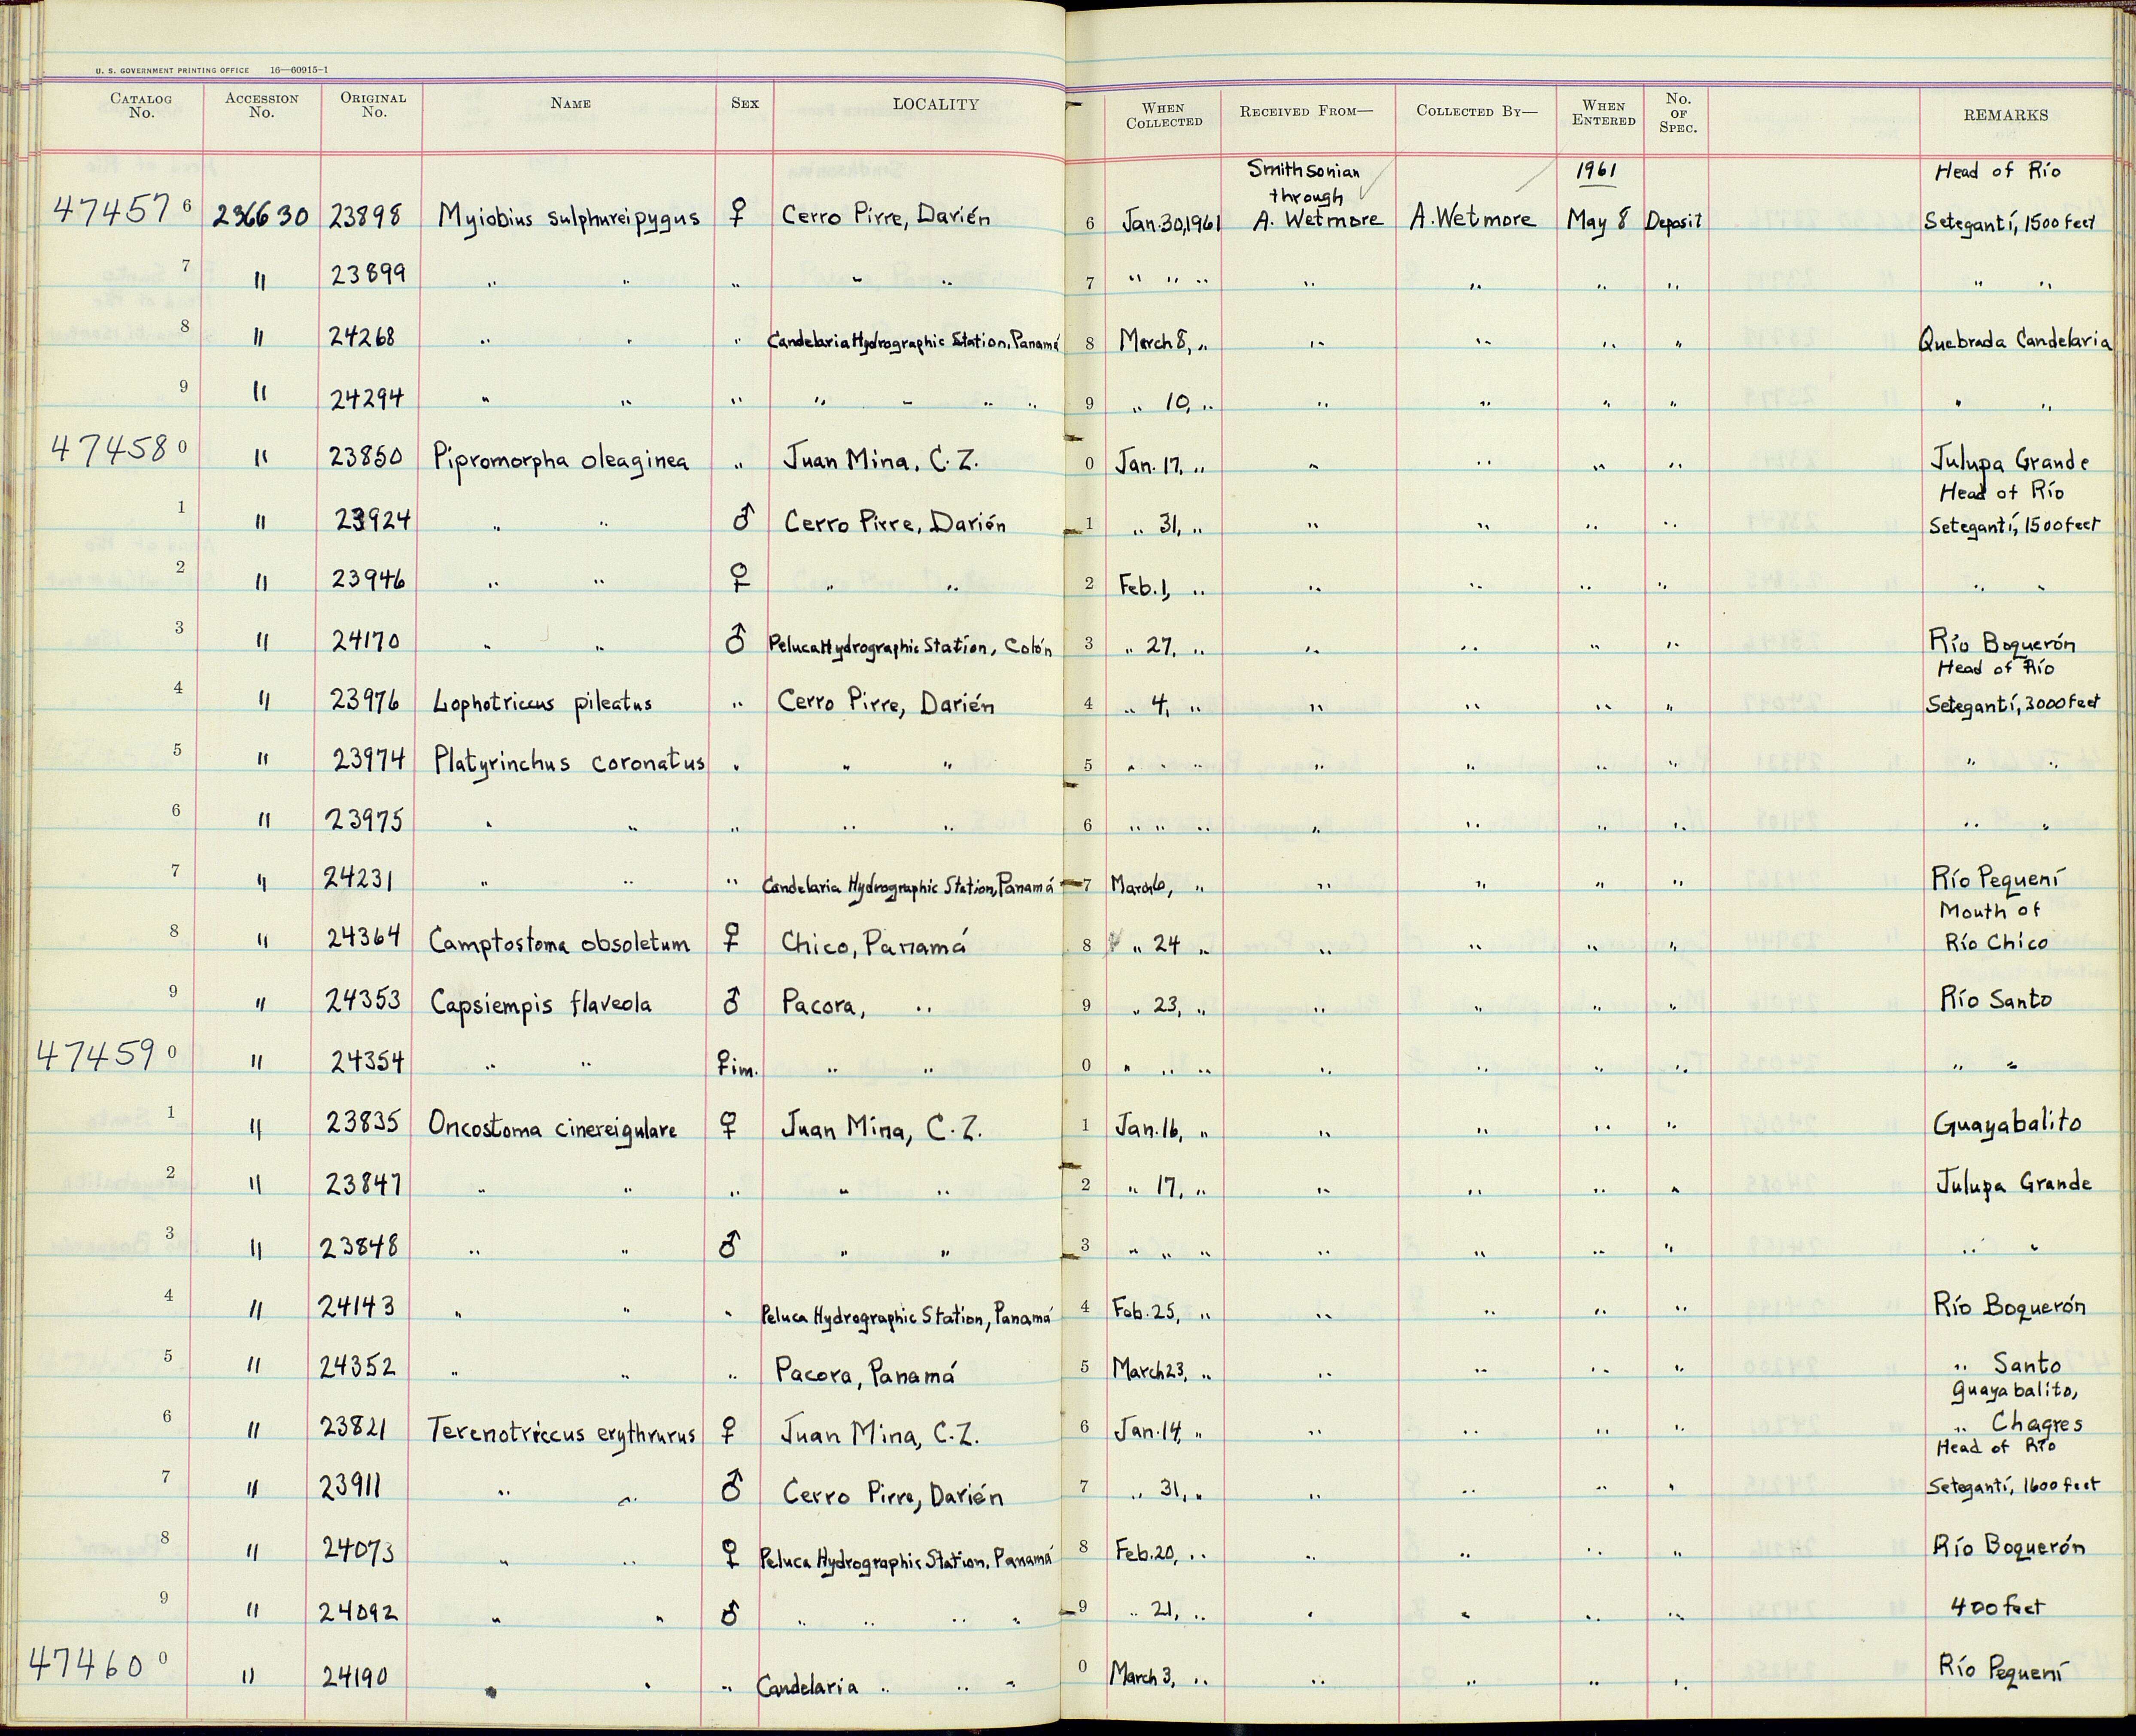 U. S. GOVERNMENT PRINTING OFFICE 16—60915-1
CATALOG No. ACCESSION No. ORIGINAL No. NAME SEX LOCALITY WHEN COLLECTED RECEIVED FROM— COLLECTED BY— WHEN ENTERED No. OF SPEC. REMARKS
Smithsonian 1961 Head of Río
through
47457 6 236630 23898 Myiobius sulphureipygus ♀ Cerro Pirre, Darién 6 Jan.30,1961 A. Wetmore A. Wetmore May 8 Deposit Setegantí, 1500 feet
7 " 23899 " " " " " 7 " " " " " " " " "
8 " 24268 " " " Candelaria Hydrographic Station, Panamá 8 March 8, " " " " " Quebrada Candelaria
9 " 24294 " " " " " " " 9 " 10, " " " " " " "
47458 0 " 23850 Pipromorpha oleaginea " Juan Mina, C.Z. 0 Jan. 17, " " " " " Julupa Grande
Head of Río
1 " 23924 " " ♂ Cerro Pirre, Darién 1 " 31, " " " " " Setegantí, 1500 feet
2 " 23946 " " ♀ " " 2 Feb. 1, " " " " " " "
3 " 24170 " " ♂ Peluca Hydrographic Station, Colón 3 " 27, " " " " " Río Boquerón
Head of Río
4 " 23976 Lophotriccus pileatus " Cerro Pirre, Darién 4 " 4, " " " " " Setegantí, 3000 feet
5 " 23974 Platyrinchus coronatus " " " 5 " " " " " " " " "
6 " 23975 " " " " " 6 " " " " " " " " "
7 " 24231 " " " Candelaria Hydrographic Station, Panamá 7 March 6, " " " " " Río Pequení
Mouth of
8 " 24364 Camptostoma obsoletum ♀ Chico, Panamá 8 " 24 " " " " " Río Chico
9 " 24353 Capsiempis flaveola ♂ Pacora, " 9 " 23, " " " " " Río Santo
47459 0 " 24354 " " ♀im. " " 0 " " " " " " " " "
1 " 23835 Oncostoma cinereigulare ♀ Juan Mina, C.Z. 1 Jan. 16, " " " " " Guayabalito
2 " 23847 " " " " " 2 " 17, " " " " " Julupa Grande
3 " 23848 " " ♂ " " 3 " " " " " " " " "
4 " 24143 " " " Peluca Hydrographic Station, Panamá 4 Feb. 25, " " " " " Río Boquerón
5 " 24352 " " " Pacora, Panamá 5 March 23, " " " " " " Santo
Guayabalito,
6 " 23821 Terenotriccus erythrurus ♀ Juan Mina, C.Z. 6 Jan. 14, " " " " " " Chagres
Head of Río
7 " 23911 " " ♂ Cerro Pirre, Darién 7 " 31, " " " " " Setegantí, 1600 feet
8 " 24073 " " ♀ Peluca Hydrographic Station, Panamá 8 Feb. 20, " " " " " Río Boquerón
9 " 24092 " " ♂ " " " " 9 " 21, " " " " " 400 feet
47460 0 " 24190 " " " Candelaria " " " 0 March 3, " " " " " Río Pequení